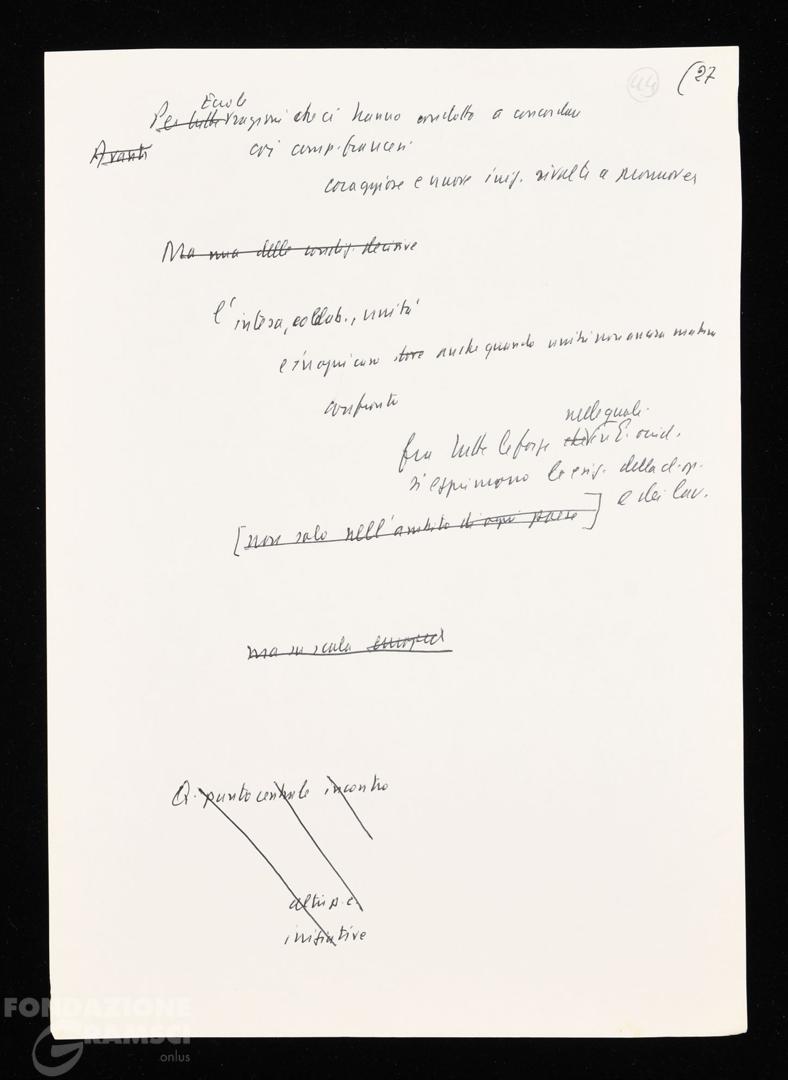 44
(27
E sono le
Per tutte ragioni che ci hanno condotto a concordare
Avanti
coi comp. francesi
coraggiose e nuove iniz. rivolte a promuover
Ma una delle condiz. decisive
l'intesa, collab., unità
e in ogni caso anche quando unità non ancora matura
confronto
nelle quali
fra tutte le forze che in E. occid.
si esprimono le esig. della cl. op.
e dei lav.
[non solo nell'ambito di ogni paese]
ma su scala europea
Q. punto centrale incontro
altri p.c.
iniziative
FONDAZIONE
GRAMSCI
.onlus